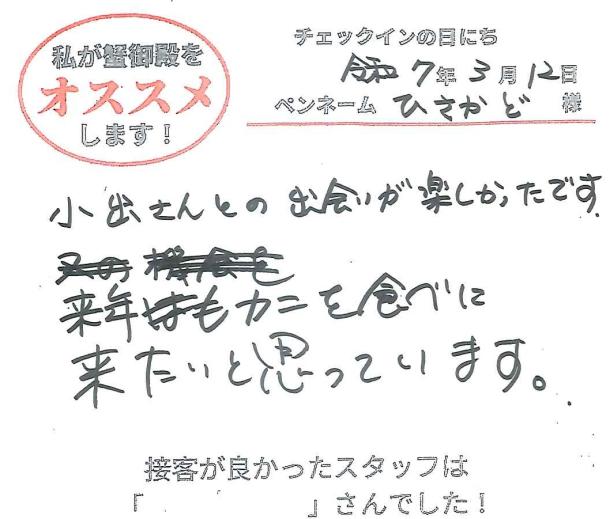 私が蟹御殿を
オススメ
します!
チェックインの日にち
令和7年3月12日
ペンネーム ひさかど 様
小出さんとの出会いが楽しかったです
又の機会を
来年はもカニを食べに
来たいと思っています。
接客が良かったスタッフは
「 」さんでした!